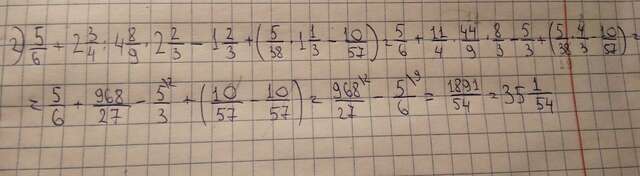 2) 5/6 + 2 3/4 · 4 8/9 · 2 2/3 - 1 2/3 + (5/38 · 1 1/3 - 10/57) = 5/6 + 11/4 · 44/9 · 8/3 - 5/3 + (5/38 · 4/3 - 10/57) =
= 5/6 + 968/27 - 5\2/3 + (10/57 - 10/57) = 968\2/27 - 5\9/6 = 1891/54 = 35 1/54